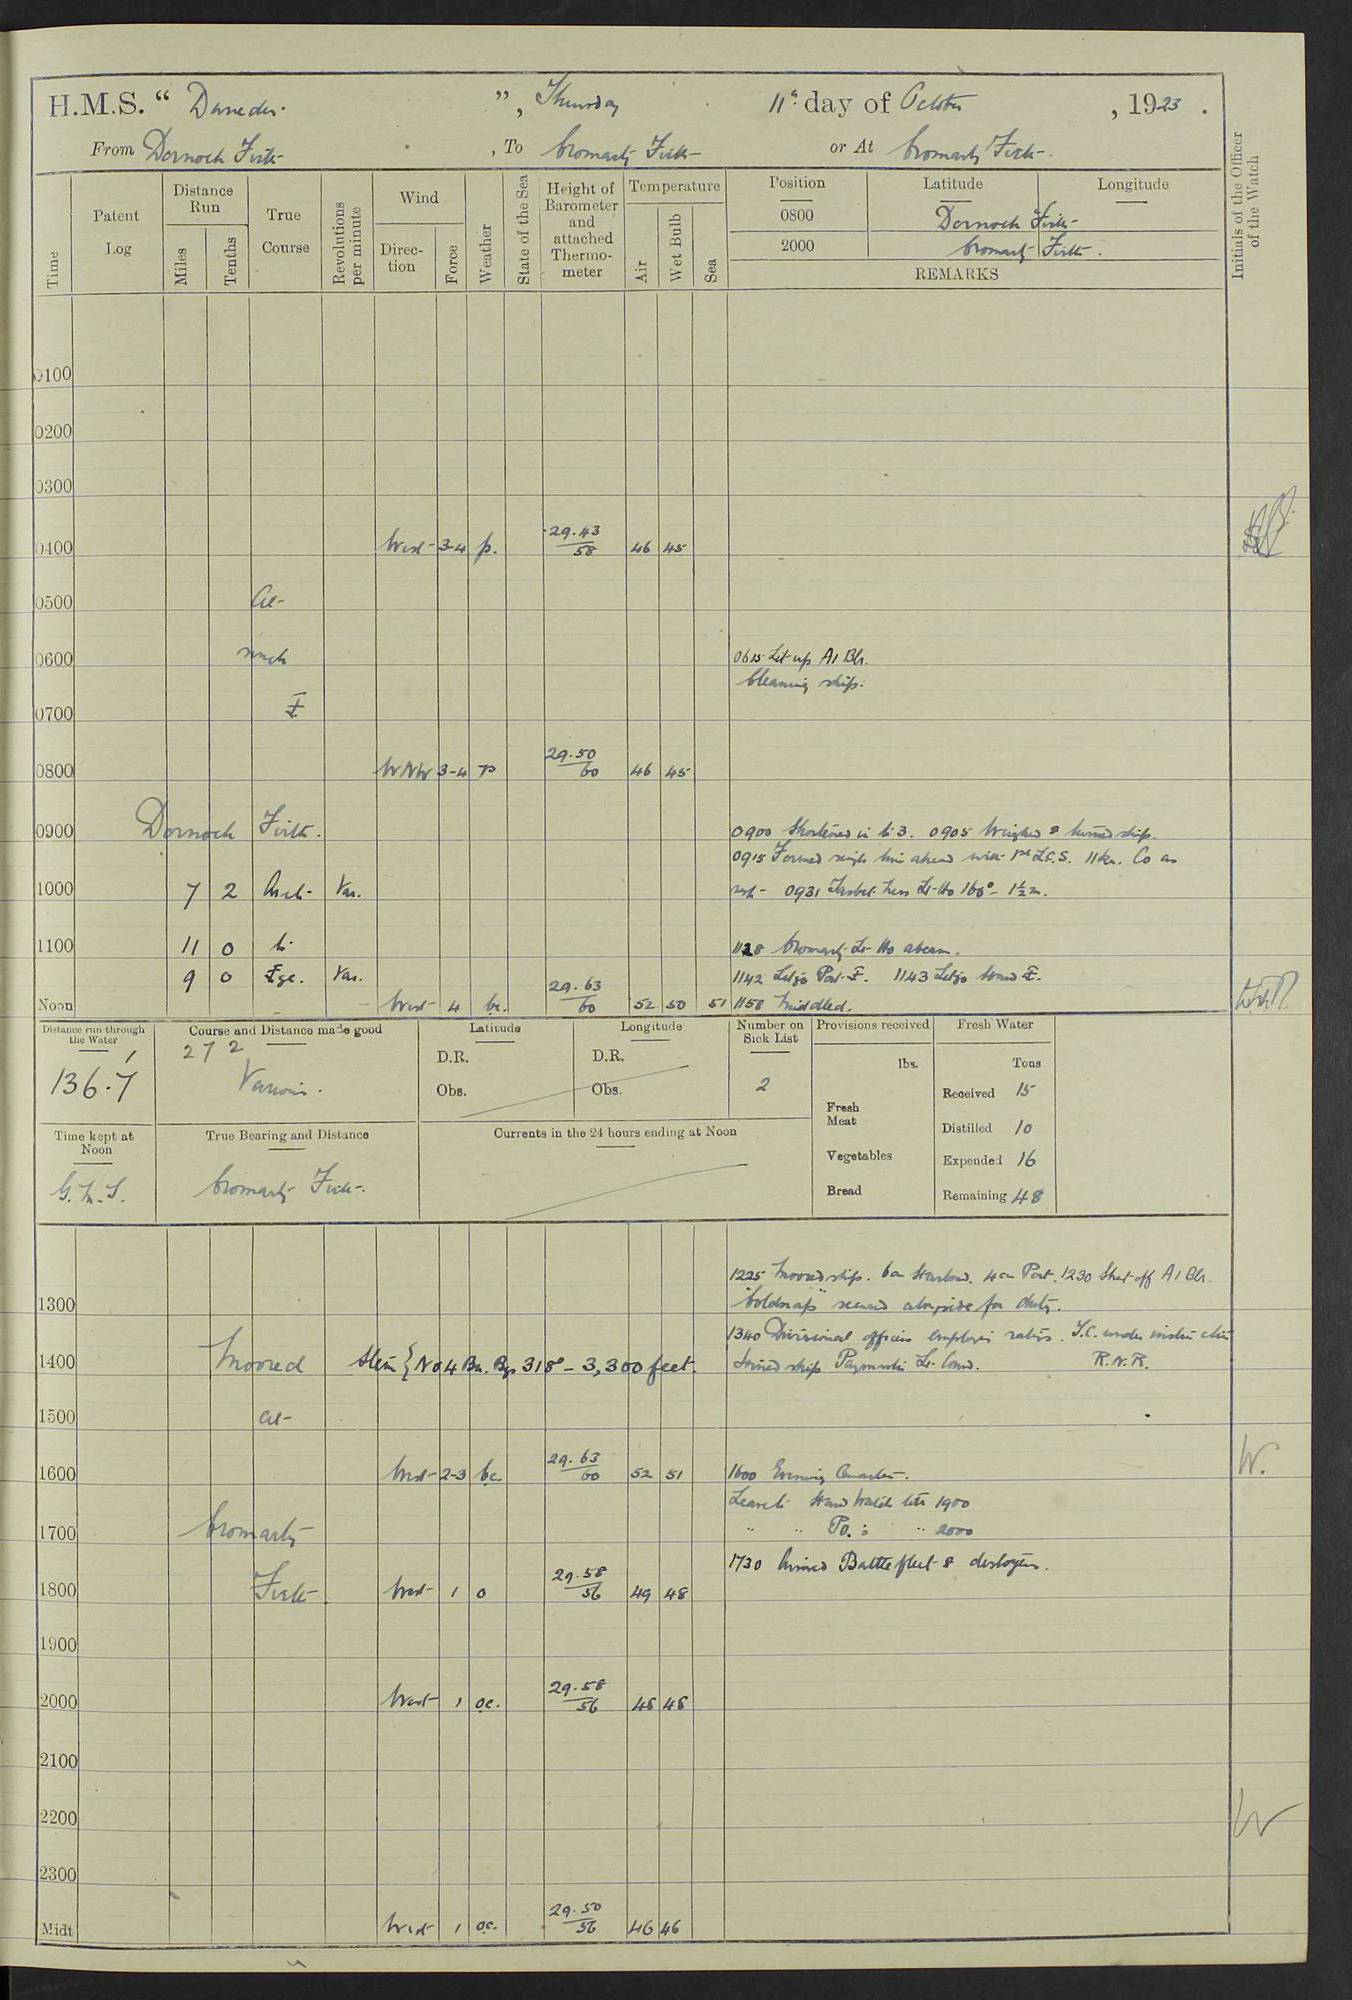 H.M.S. “ Dunedin. ”, Thursday 11th day of October , 1923 .
From Dornoch Firth , To Cromarty Firth or At Cromarty Firth.
Time
Patent Log
Distance Run
Miles
Tenths
True Course
Revolutions per minute
Wind
Direction
Force
Weather
State of the Sea
Height of Barometer and attached Thermometer
Temperature
Air
Wet Bulb
Sea
Position Latitude Longitude
0800 Dornoch Firth
2000 Cromarty Firth.
REMARKS
Initials of the Officer of the Watch
0100
0200
0300
0400 West 3-4 p. 29.43 58 46 45
0500 At
0600 0615 Lit up A1 Blr.
Cleaning ship.
0700
0800 WNW 3-4 p 29.50 60 46 45
0900 Dornoch Firth. 0900 Shortened in to 3. 0905 Weighed & turned ship.
0915 Formed single line ahead with 1st L.C.S. 11 kn. Co as
1000 7 2 Var. 0931 Tarbet Ness Lt Ho 160° - 1½ m.
1100 11 0 to 1128 Cromarty Lt Ho abeam.
9 0 Var. 1142 Letgo Port 1143 Letgo
Noon West 4 bc. 29.63 60 52 50 51 1158 Middled.
Distance run through the Water
136.7
Course and Distance made good
27 2
Various.
Latitude
D.R.
Obs.
Longitude
D.R.
Obs.
Number on Sick List
2
Provisions received
lbs.
Fresh Meat
Vegetables
Bread
Fresh Water
Tons
Received 15
Distilled 10
Expended 16
Remaining 48
Time kept at Noon
G.M.T.
True Bearing and Distance
Cromarty Firth.
Currents in the 24 hours ending at Noon
1225 Moored ship. 6 on Starboard. 4 on Port. 1230 Shut off A1 Blr.
1300 "Coldsnap" secured alongside for duty.
1340 Divisional officers employing ratings. T.C. under instruction
1400 Moored Stem No 4 Bn. Bg 318° - 3,300 feet. Joined ship Paymaster Lt. Comd. R.N.R.
1500 at
1600 West 2-3 bc. 29.63 60 52 51 1600 Evening Quarters.
Leave to Starbd Watch till 1900
1700 Cromarty " " P.O.s " 2000
1730 Arrived Battle fleet & destroyers.
1800 Firth West 1 o 29.58 56 49 48
1900
2000 West 1 oc. 29.58 56 48 48
2100
2200
2300
Midt West 1 oc. 29.50 56 46 46